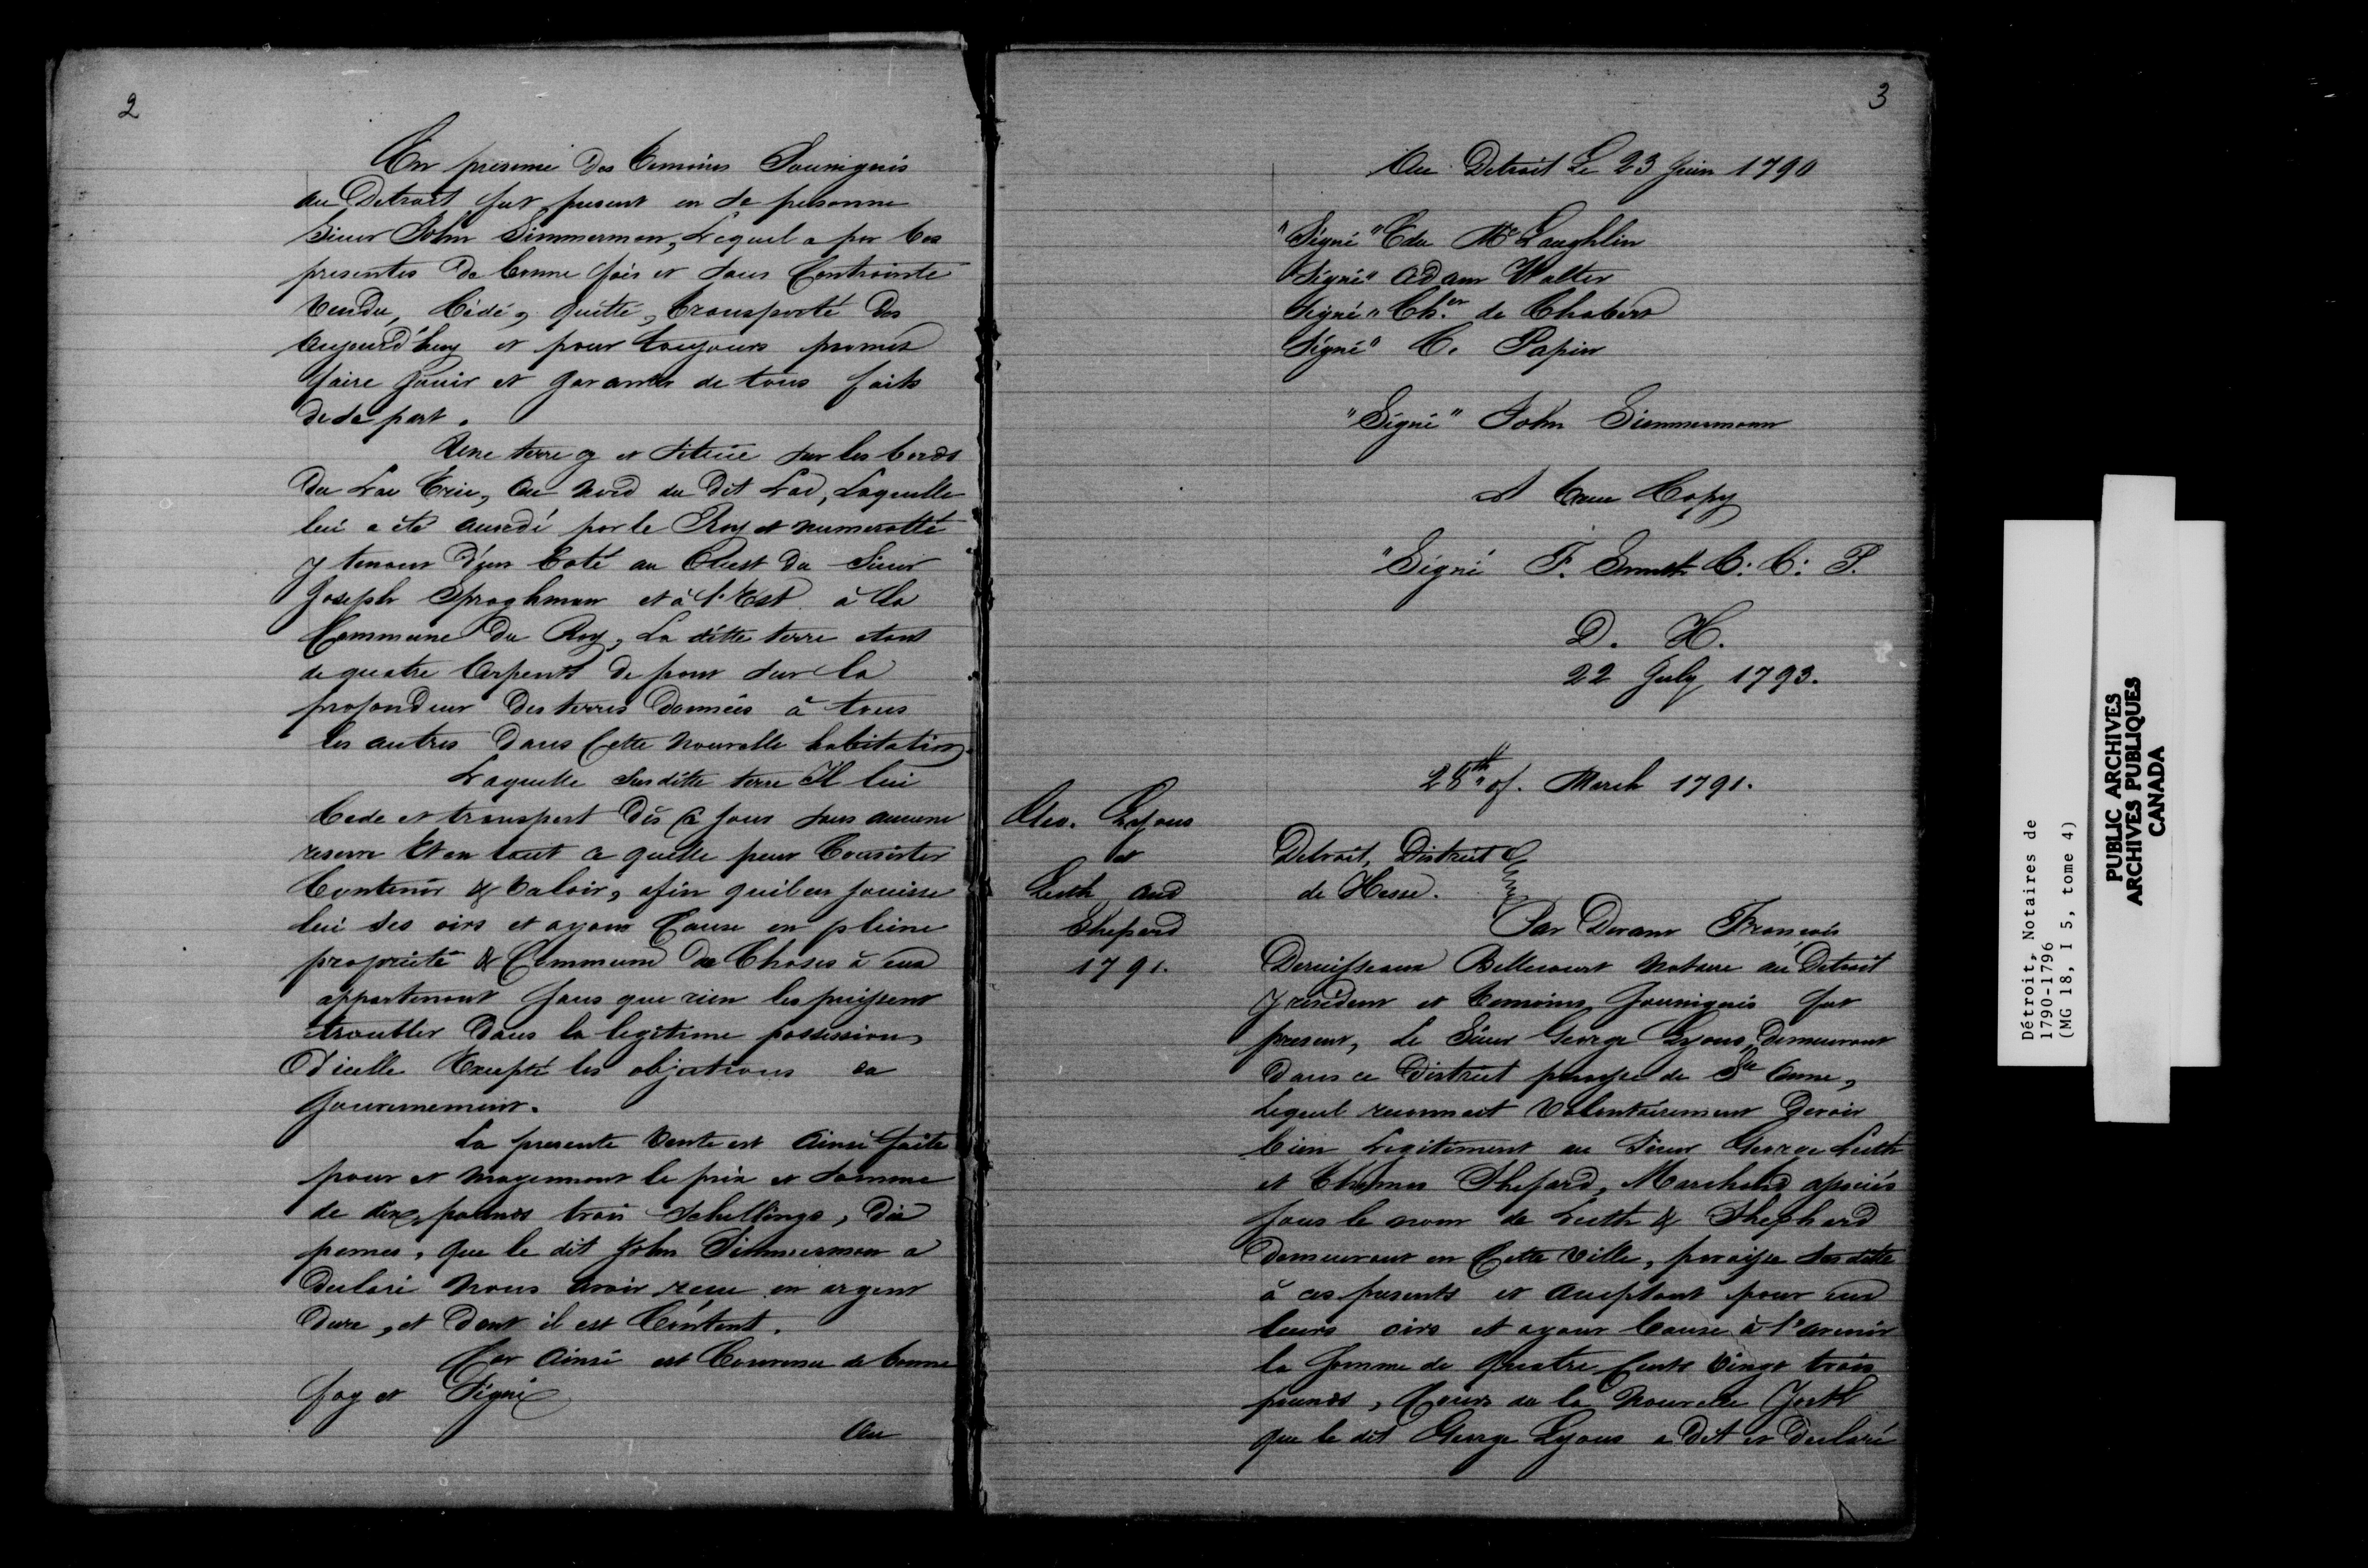 2
En presence des temoins Sousignés
au Detroit fut present en sa personne
Sieur John Simmerman, Lequel a par Ces
presentes de bonne fois et sans Contrainte
Vendu, Cédé, quitté, transporté des
aujourd'huy et pour toujours promet
faire jouir et garantir de tous faits
de sa part.
Une terre et Située sur les bords
du Lac Erie, au nord du dit Lac, Laquelle
lui a été accedé par le Roy et numerotté
y tenant d'un Coté au Ouest du Sieur
Joseph Sproghman et à l'Est à la
Commune du Roy, La ditte terre etant
de quatre Arpents de front sur la
profondeur des terres données à tous
les autres dans Cette nouvelle habitation
Laquelle Susditte terre Il lui
Cede et transport dès Ce jour sans aucune
reserve Et en tout ce quelle peut Consister
Contenir & Valoir, afin quil en jouisse
lui ses oirs et ayans Cause en pleine
propriété & Commune de Choses à eux
appartenant sans que rien les puissent
troubler dans la legitime possession,
D'icelle Excepté les objections
Gouvernement.
La presente Vente est Ainsi faite
pour et moyennant le prix et somme
de dix pounds trois Schellings, dix
pennes, que le dit John Simmerman a
declaré nous avoir recue en argent
dure, et dont il est Content.
Car Ainsi est Convenu de bonne
foy et Signé
Au
3
Au Detroit Le 23 Juin 1790
"Signé" Edw McLaughlin
"Signé" Adam Walter
Signé" Ch.er de Chabert
Signé" C. Papin
"Signé" John Simmermann
A true Copy
"Signé F. Smith C: C: P.
D. H.
22 July 1793.
28th of. March 1791.
Geo. Lyons
et
Leith and
Sheperd
1791.
Detroit, District
de Hesse.
Par Devant François
Deruisseau Bellecourt Notaire au Detroit
y residant et temoins Sousignés fut
present, le Sieur George Lyons, demeurant
dans ce District paroisse de Ste Anne,
Lequel reconnait Volontairement Devoir
bien Legitement au Sieur George Leith
et Thomas Shepard, Marchand associés
sous le nom de Leith & Shepherd
demeurant en Cette Ville, paroisse Susditte
à ces presents et acceptant pour eux
leurs oirs et ayant Cause à l'avenir
la Somme de Quatre Cents Vingt trois
pounds, Cours de la Nouvelle York
que le dit George Lyons a dit et declaré
Détroit, Notaires de
1790-1796
(MG 18, I 5, tome 4)
PUBLIC ARCHIVES
ARCHIVES PUBLIQUES
CANADA